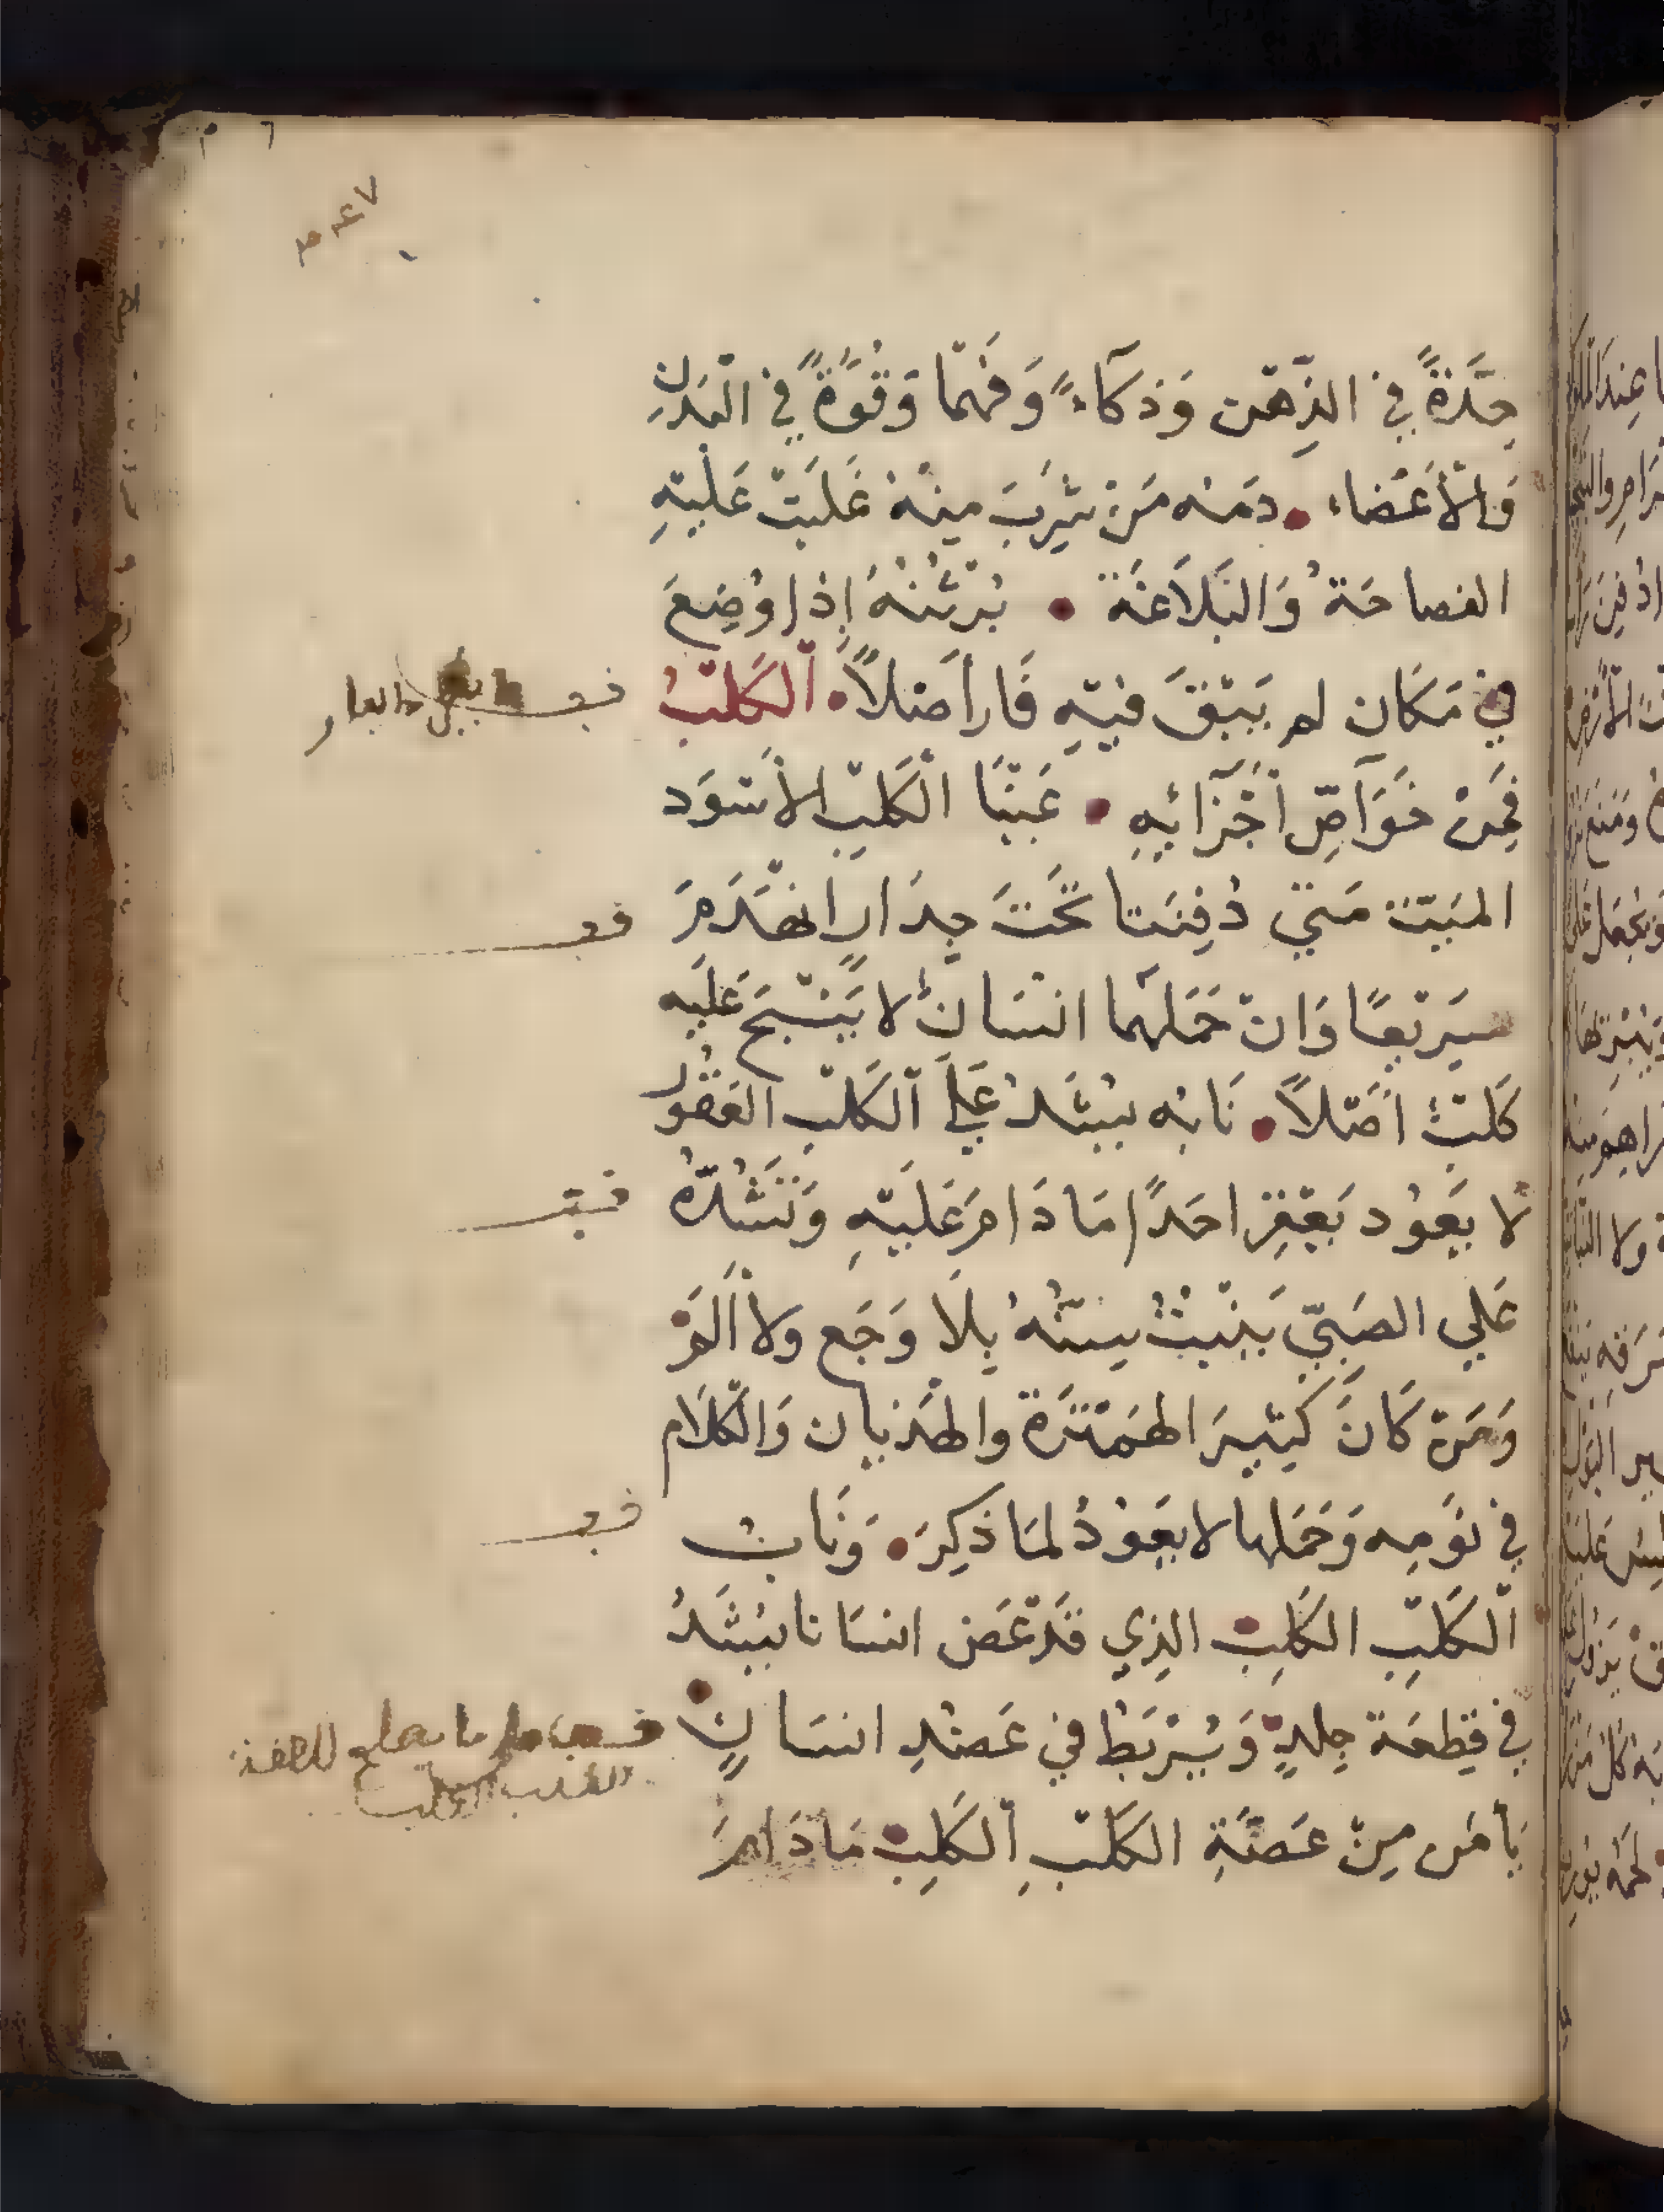 حِدَّةً فِي الذِّهْنِ وَذَكَآءً وَفَهْمًا وَقُوَّةً فِي الْبَدَنِ
وَالْأَعْضَاء • دمه مَنْ شَرِبَ مِنْهُ غَلَبَتْ عَلَيْهِ
الفصاحَةُ وَالْبَلَاغَة • بُرْثُنُهُ إِذَا وُضِعَ
فِي مَكَان لم يَبْقَ فِيْهِ فَار اَصْلاً • اَلْكَلْبُ
فَمِنْ خَوَآصِّ أَجْزَآئِهِ • عَيْنَا الْكَلْبِ الأَسْوَد
الميّت مَتي دُفِنَتا تَحْتَ جِدَارٍ انْهَدَمَ
سَرِيْعًا وَانْ حَمَلَهُمَا انْسَانٌ لا يَنْبَحُ عَلَيْهِ
كَلْبٌ اصْلاً • نَابُه يُشَدُّ عَلَي اَلْكَلْبِ الْعَقُوْرِ
لا يَعُوْد يَعْقِرُ احَدًا مَا دَامَ عَلَيْهِ وَتُشَدُّ
عَلي الصَبِيّ يَنْبُتُ سِنُّهُ بِلَا وَجَع ولا أَلَمْ
وَمَنْ كَانَ كَثِيْرَ الهَمْزَة والهَذَيان وَالْكَلَام
في نَوْمِه وَحَمَلَها لا يَعُوْدُ لمَا ذُكِرَ • وَنَاب
اَلْكَلْبِ الكَلِبِ الذِي قَدْ عَضّ انسَانا يُشَدُّ
فِي قِطْعَة جِلْدٍ وَيُرْبَطُ في عَضُدِ انسَانٍ
يَأمَن مِنْ عَضَّةِ الكَلْبِ اَلْكَلِبِ مَا دَامَ